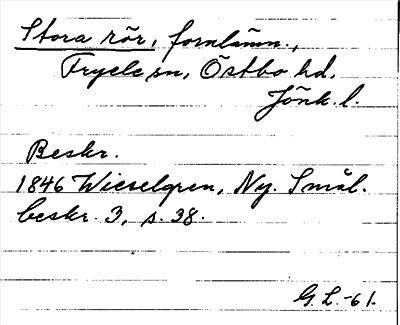 Stora rör, fornlämn.,
Tryele sn, Östbo hd.
Jönk. l.
Beskr.
1846 Wieselgren, Ny. Smål.
beskr. 3, s. 38.
G. L. -61.